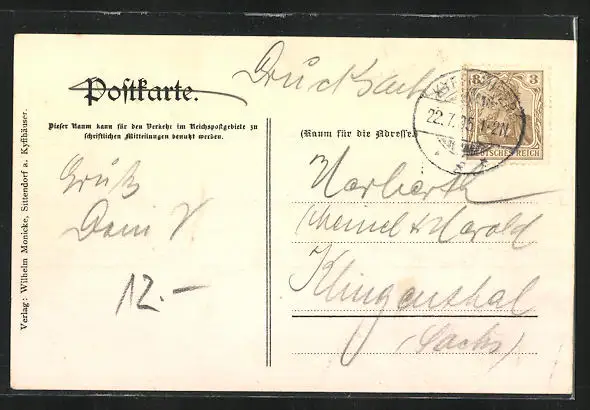 Postkarte.
Drucksache
3 3
22.7.06.1-2N
DEUTSCHES REICH
Dieser Raum kann für den Verkehr im Reichspostgebiete zu
schriftlichen Mitteilungen benutzt werden.
(Raum für die Adresse)
Gruß
12.-
Klingenthal
(Sachs)
Verlag: Wilhelm Monicke, Sittendorf a. Kyffhäuser.